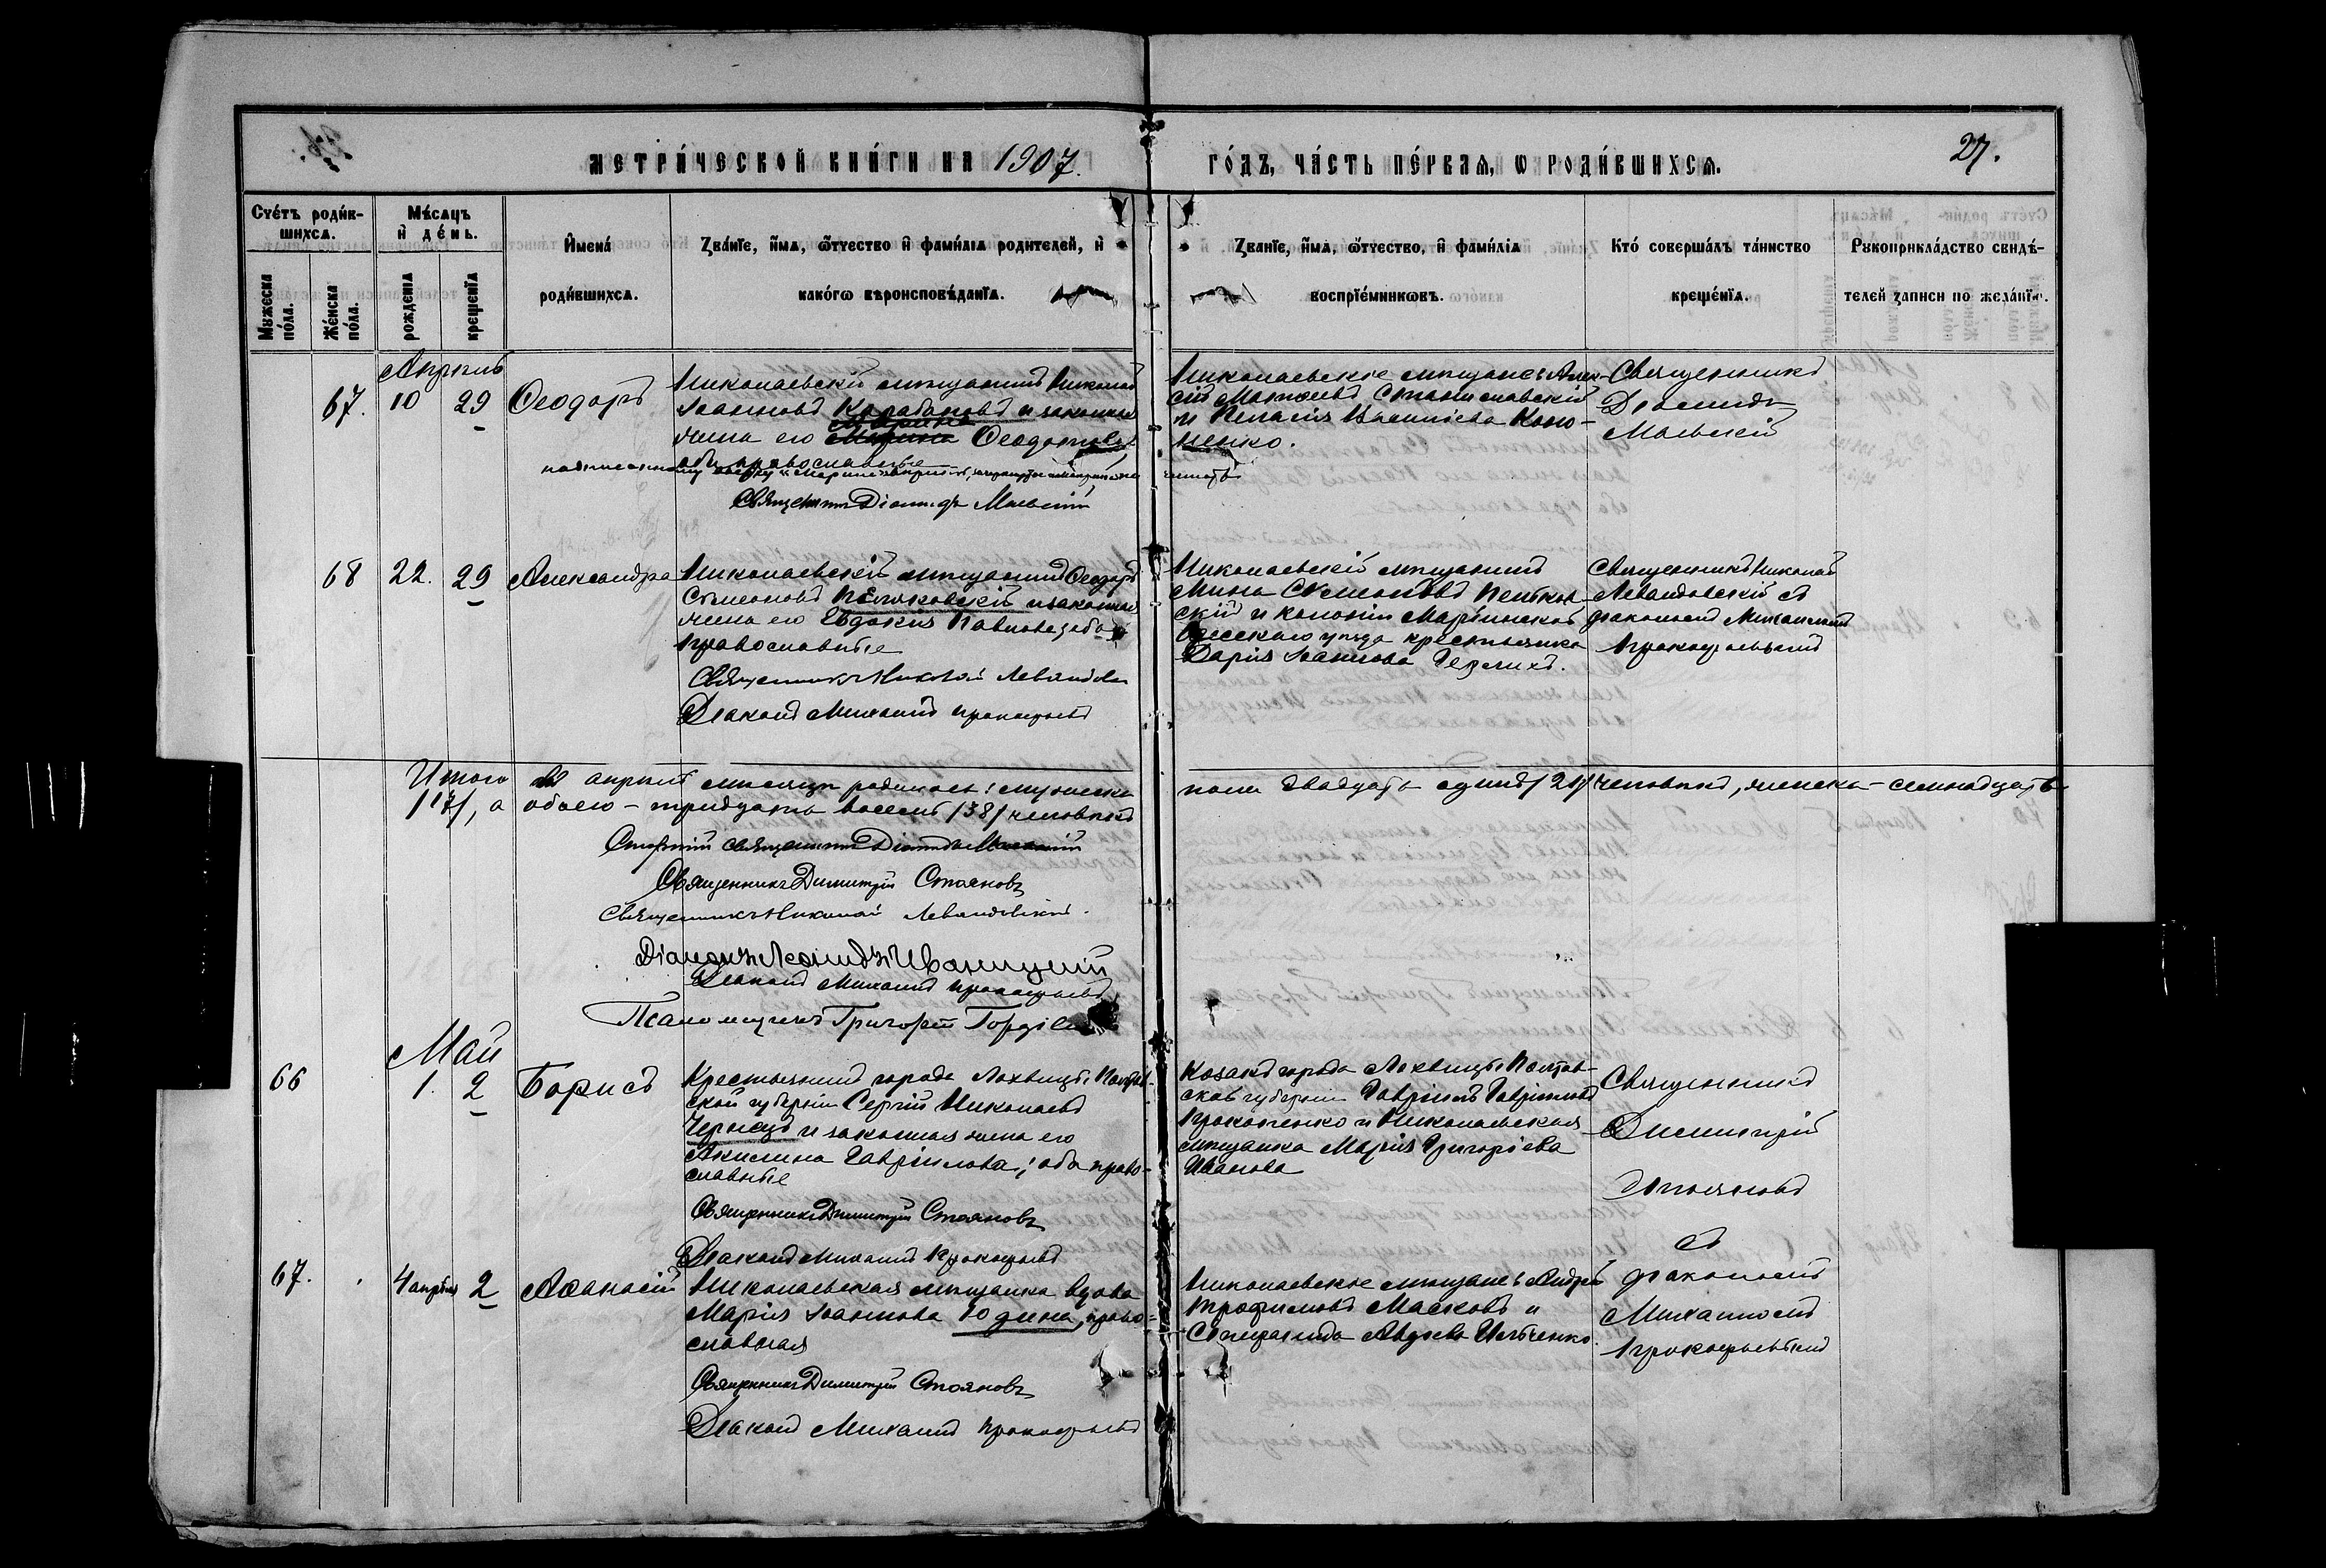 МЕТРИ́ЧЕСКОЙ КНИ́ГИ НА 1907.
ГО́ДЪ, ЧА́СТЬ ПЕ́РВАЯ, Ѡ РОДИ́ВШИХСЯ.
27.
Сче́тъ роди́в-
шихся.
Мѣ́сяцъ
и҆ де́нь.
Мужеска по́ла.
Же́нска по́ла.
рожденїѧ
крещенїѧ
И҆мена́
роди́вшихся.
Зва́нїе, и҆́мѧ, ѻ҆́тчество и҆ фами́лїѧ родителей, и҆
како́гѡ вѣроисповѣ́данїѧ.
Зва́нїе, и҆́мѧ, ѻ҆́тчество, и҆ фами́лїѧ
воспрїе́мниковъ.
Кто́ соверша́лъ та́инство
креще́нїѧ.
Рукоприкла́дство свидѣ́-
телей записи по жела́нїю.
Апрѣль
67. 10 29 Ѳеодоръ
Николаевскій мѣщанинъ Николай
Іоанновъ Карабановъ и законная
Марина
жена его Ѳеодорова
оба православные
Священникъ Діомидъ Маевскій
Николаевскіе мѣщане: Алек-
сій Матѳеевъ Станиславскій
и Пелагія Василіева Коно-
ненко.
Священникъ
Діомидъ
Маевскій
68 22. 29 Александра
Николаевскій мѣщанинъ Ѳеодоръ
Симеоновъ и законная
жена его Евдокія Павлова; оба
православные
Священникъ Николай Левандовскій
Діаконъ Михаилъ Прокофьевъ
Николаевскій мѣщанинъ
Мина Симеоновъ
скій и колоніи Маріинской
Одесскаго уѣзда крестьянка
Дарія Іоаннова
Священникъ Николай
Левандовскій съ
діакономъ Михаиломъ
Прокофьевымъ
Итого въ апрѣлѣ мѣсяцѣ родилось: мужеска
пола двадцать одинъ /21/ человѣкъ, женска – семнадцать
/17/, а обоего – тридцать восемь /38/ человѣкъ
Старшій священникъ Діомидъ Маевскій
Священникъ Димитрій Стояновъ
Священникъ Николай Левандовскій.
Діаконъ Леонидъ Иваницкій
Діаконъ Михаилъ Прокофьевъ
Псаломщикъ Григорій
Май
66 1. 2 Борисъ
Крестьянинъ города Лохвицы, Полтав-
ской губерніи Сергій Николаевъ
Чернецъ и законная жена его
Акилина Гавріилова; оба право-
славные
Священникъ Димитрій Стояновъ
Діаконъ Михаилъ Прокофьевъ
Козакъ города Лохвицы Полтав-
ской губерніи Гавріилъ Гавріиловъ
Прокопенко и Николаевская
мѣщанка Марія Григоріева
Иванова
Священникъ
Димитрій
Стояновъ
съ
діакономъ
Михаиломъ
Прокофьевымъ
67. 4 апрѣля 2 Аѳанасій
Николаевская мѣщанка вдова
Марія Іоаннова Юдина, право-
славная
Священникъ Димитрій Стояновъ
Діаконъ Михаилъ Прокофьевъ
Николаевскіе мѣщане: Андрей
Трофимовъ Масковъ и
Степанида Авдіева Ильченко.